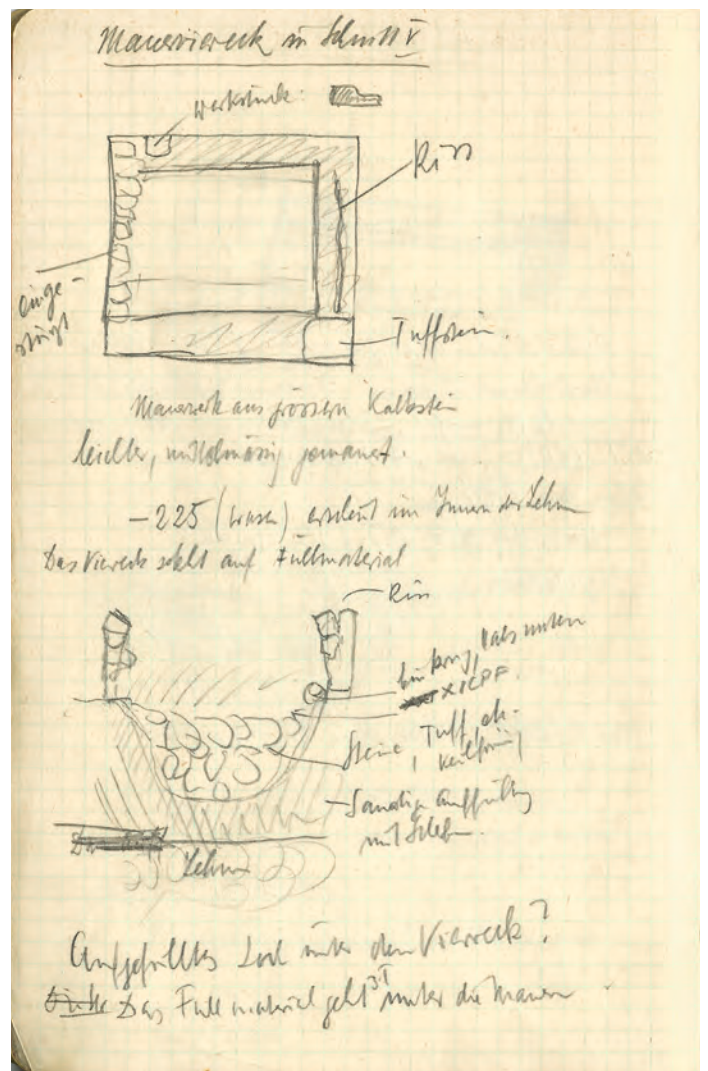 Mauerviereck in Schnitt V
Werkstück:
Riss
einge-
stürzt
Tuffstein.
Mauerwerk aus grössern Kalkstein
leichter, mittelmässig gemauert.
-225 (Wasen) erscheint im Innern der Lehm
Das Viereck steht auf Füllmaterial
Riss
unten
Steine, Tuff, etc.
, keilförmig
Sandige Auffüllung
mit
Lehm
Aufgefülltes Loch unter dem Viereck?
Das Füllmaterial geht unter die Mauern